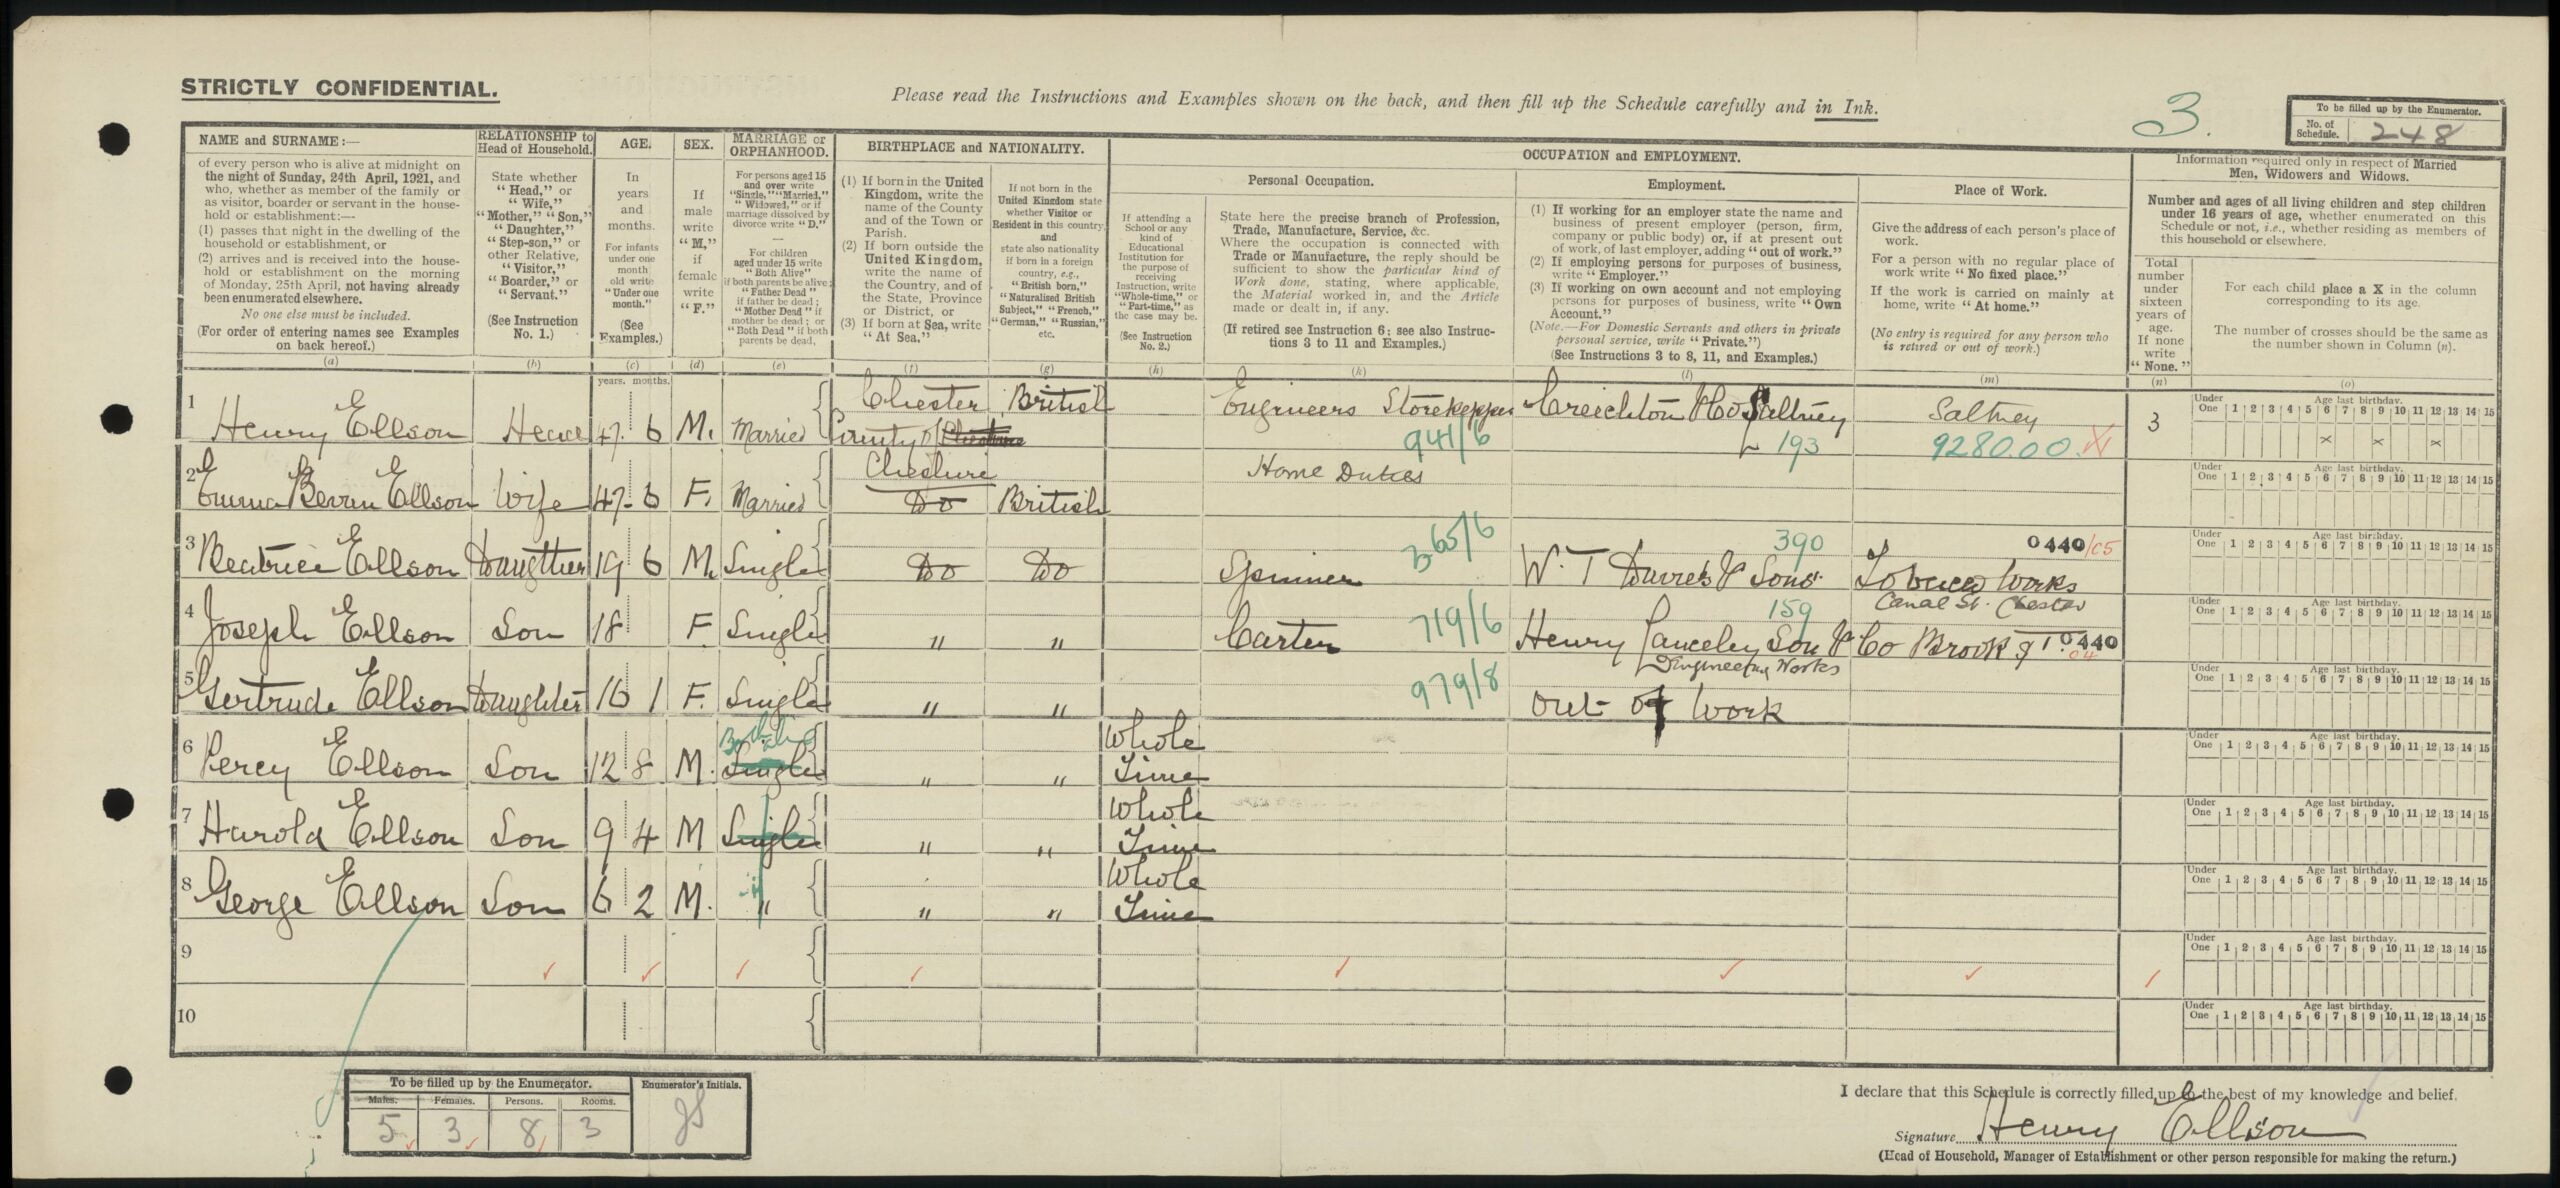 STRICTLY CONFIDENTIAL.
Please read the Instructions and Examples shown on the back, and then fill up the Schedule carefully and in Ink.
3.
To be filled up by the Enumerator.
No. of Schedule. 248
NAME and SURNAME:—
of every person who is alive at midnight on
the night of Sunday, 24th April, 1921, and
who, whether as member of the family or
as visitor, boarder or servant in the house-
hold or establishment:—
(1) passes that night in the dwelling of the
household or establishment, or
(2) arrives and is received into the house-
hold or establishment on the morning
of Monday, 25th April, not having already
been enumerated elsewhere.
No one else must be included.
(For order of entering names see Examples
on back hereof.)
(a)
RELATIONSHIP to
Head of Household.
State whether
"Head," or
"Wife,"
"Mother," "Son,"
"Daughter,"
"Step-son," or
other Relative,
"Visitor,"
"Boarder," or
"Servant."
(See Instruction
No. 1.)
(b)
AGE.
In
years
and
months.
For infants
under one
month
old write
"Under one
month."
(See
Examples.)
(c)
years. months.
SEX.
If
male
write
"M,"
if
female
write
"F."
(d)
MARRIAGE or
ORPHANHOOD.
For persons aged 15
and over write
"Single," "Married,"
"Widowed," or if
marriage dissolved by
divorce write "D."
—
For children
aged under 15 write
"Both Alive"
if both parents be alive;
"Father Dead"
if father be dead;
"Mother Dead" if
mother be dead; or
"Both Dead" if both
parents be dead.
(e)
BIRTHPLACE and NATIONALITY.
(1) If born in the United
Kingdom, write the
name of the County
and of the Town or
Parish.
(2) If born outside the
United Kingdom,
write the name of
the Country, and of
the State, Province
or District, or
(3) If born at Sea, write
"At Sea."
(f)
If not born in the
United Kingdom state
whether Visitor or
Resident in this country,
and
state also nationality
if born in a foreign
country, e.g.,
"British born,"
"Naturalised British
Subject," "French,"
"German," "Russian,"
etc.
(g)
OCCUPATION and EMPLOYMENT.
Personal Occupation.
If attending a
School or any
kind of
Educational
Institution for
the purpose of
receiving
Instruction, write
"Whole-time," or
"Part-time," as
the case may be.
(See Instruction
No. 2.)
(h)
State here the precise branch of Profession,
Trade, Manufacture, Service, &c.
Where the occupation is connected with
Trade or Manufacture, the reply should be
sufficient to show the particular kind of
Work done, stating, where applicable,
the Material worked in, and the Article
made or dealt in, if any.
(If retired see Instruction 6; see also Instruc-
tions 3 to 11 and Examples.)
(k)
Employment.
(1) If working for an employer state the name and
business of present employer (person, firm,
company or public body) or, if at present out
of work, of last employer, adding "out of work."
(2) If employing persons for purposes of business,
write "Employer."
(3) If working on own account and not employing
persons for purposes of business, write "Own
Account."
(Note.—For Domestic Servants and others in private
personal service, write "Private.")
(See Instructions 3 to 8, 11, and Examples.)
(l)
Place of Work.
Give the address of each person's place of
work.
For a person with no regular place of
work write "No fixed place."
If the work is carried on mainly at
home, write "At home."
(No entry is required for any person who
is retired or out of work.)
(m)
Information required only in respect of Married
Men, Widowers and Widows.
Number and ages of all living children and step children
under 16 years of age, whether enumerated on this
Schedule or not, i.e., whether residing as members of
this household or elsewhere.
Total
number
under
sixteen
years of
age.
If none
write
"None."
(n)
For each child place a X in the column
corresponding to its age.
The number of crosses should be the same as
the number shown in Column (n).
(o)
1 Henry Ellson Head 47. 6 M. Married Chester County of Cheshire British Engineers Storekepper 941/6 Creichton & Co Saltney 193 Saltney 92800.0. 3 x x x
2 Emma Ellson Wife 47-6 F. Married Cheshire Do British Home Duties
3 Beatrice Ellson Daugther 19 6 M. Single Do Do Spinner 365/6 390 W. T Davies & Sons. 0440/05 Tobacco Works Canal St. Chester
4 Joseph Ellson Son 18 F Single " " Carter 719/6 159 Henry Lanceley Son & Co Brook St 0440 04
5 Gertrude Ellson Daughter 16 1 F. Single " " 979/8 Engineering Works out of Work
6 Percy Ellson Son 12 8 M. Both alive Single " " Whole Time
7 Harold Ellson Son 9 4 M Single " " Whole Time
8 George Ellson Son 6 2 M. " " " Whole Time
9
10
Under One Age last birthday. 1 2 3 4 5 6 7 8 9 10 11 12 13 14 15
Under One Age last birthday. 1 2 3 4 5 6 7 8 9 10 11 12 13 14 15
Under One Age last birthday. 1 2 3 4 5 6 7 8 9 10 11 12 13 14 15
Under One Age last birthday. 1 2 3 4 5 6 7 8 9 10 11 12 13 14 15
Under One Age last birthday. 1 2 3 4 5 6 7 8 9 10 11 12 13 14 15
Under One Age last birthday. 1 2 3 4 5 6 7 8 9 10 11 12 13 14 15
Under One Age last birthday. 1 2 3 4 5 6 7 8 9 10 11 12 13 14 15
Under One Age last birthday. 1 2 3 4 5 6 7 8 9 10 11 12 13 14 15
Under One Age last birthday. 1 2 3 4 5 6 7 8 9 10 11 12 13 14 15
Under One Age last birthday. 1 2 3 4 5 6 7 8 9 10 11 12 13 14 15
To be filled up by the Enumerator.
Enumerator's Initials.
Males. Females. Persons. Rooms.
5 3 8 3
I declare that this Schedule is correctly filled up to the best of my knowledge and belief.
Signature Henry Ellson
(Head of Household, Manager of Establishment or other person responsible for making the return.)